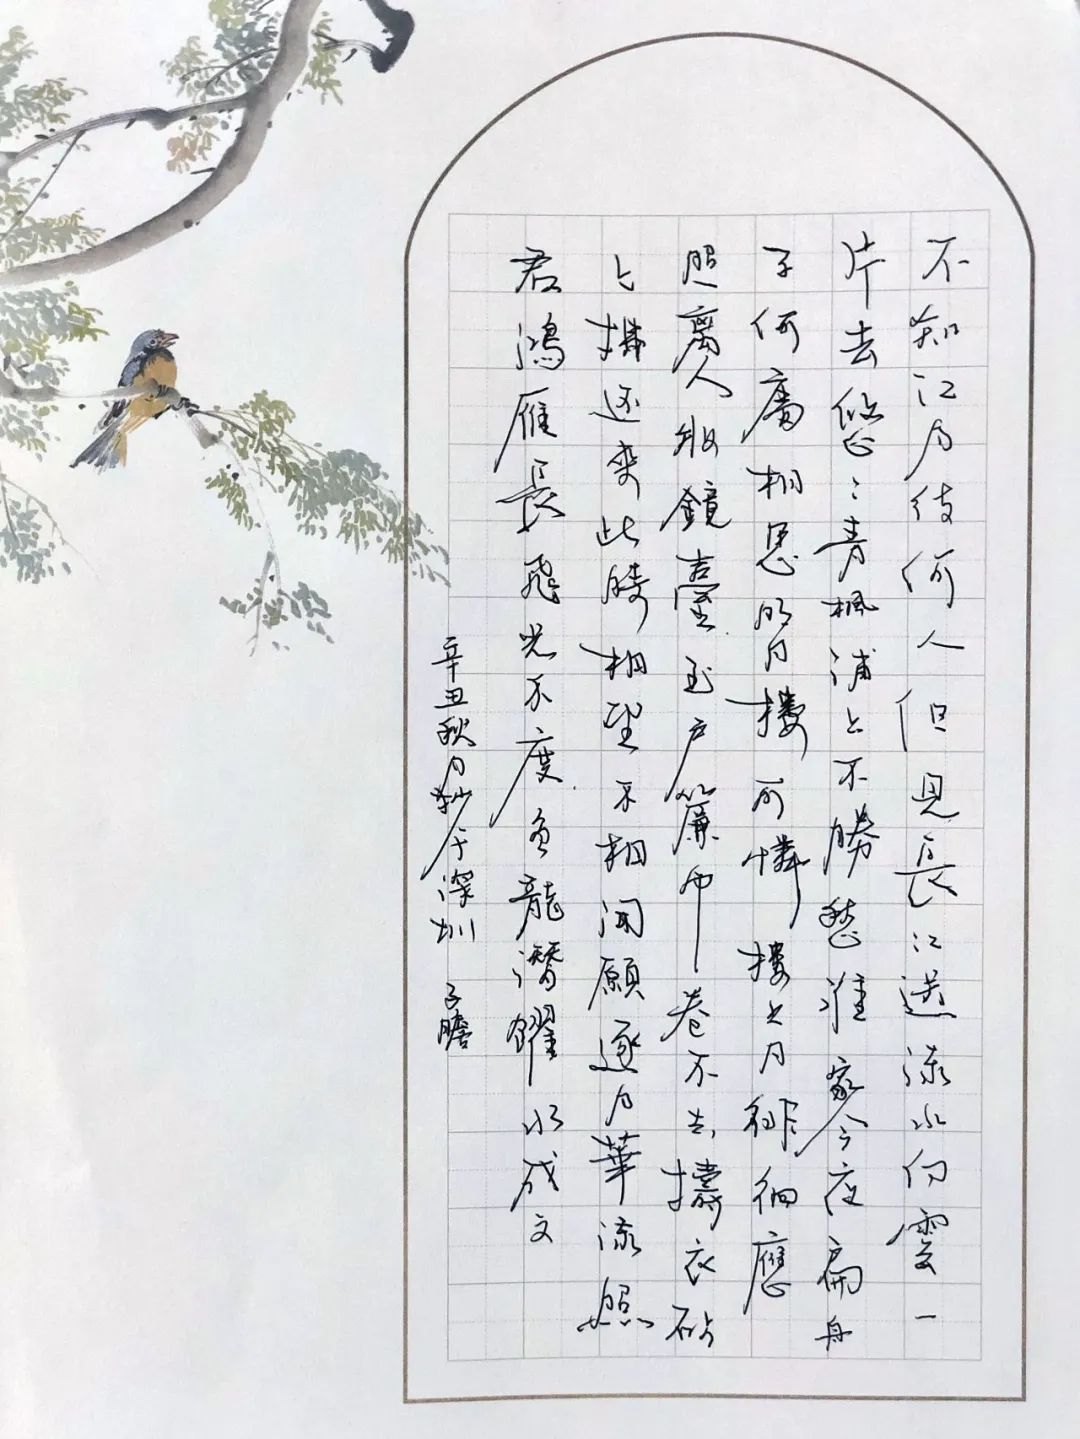 不知江月待何人但見長江送流水白雲一
片去悠〻青楓浦上不勝愁誰家今夜扁舟
子何處相思明月樓可憐樓上月徘徊應
照離人妝鏡臺玉戶簾中卷不去擣衣砧
上拂還來此時相望不相聞願逐月華流照
君鴻雁長飛光不度魚龍潛躍水成文
辛丑秋月抄于深圳 子瞻